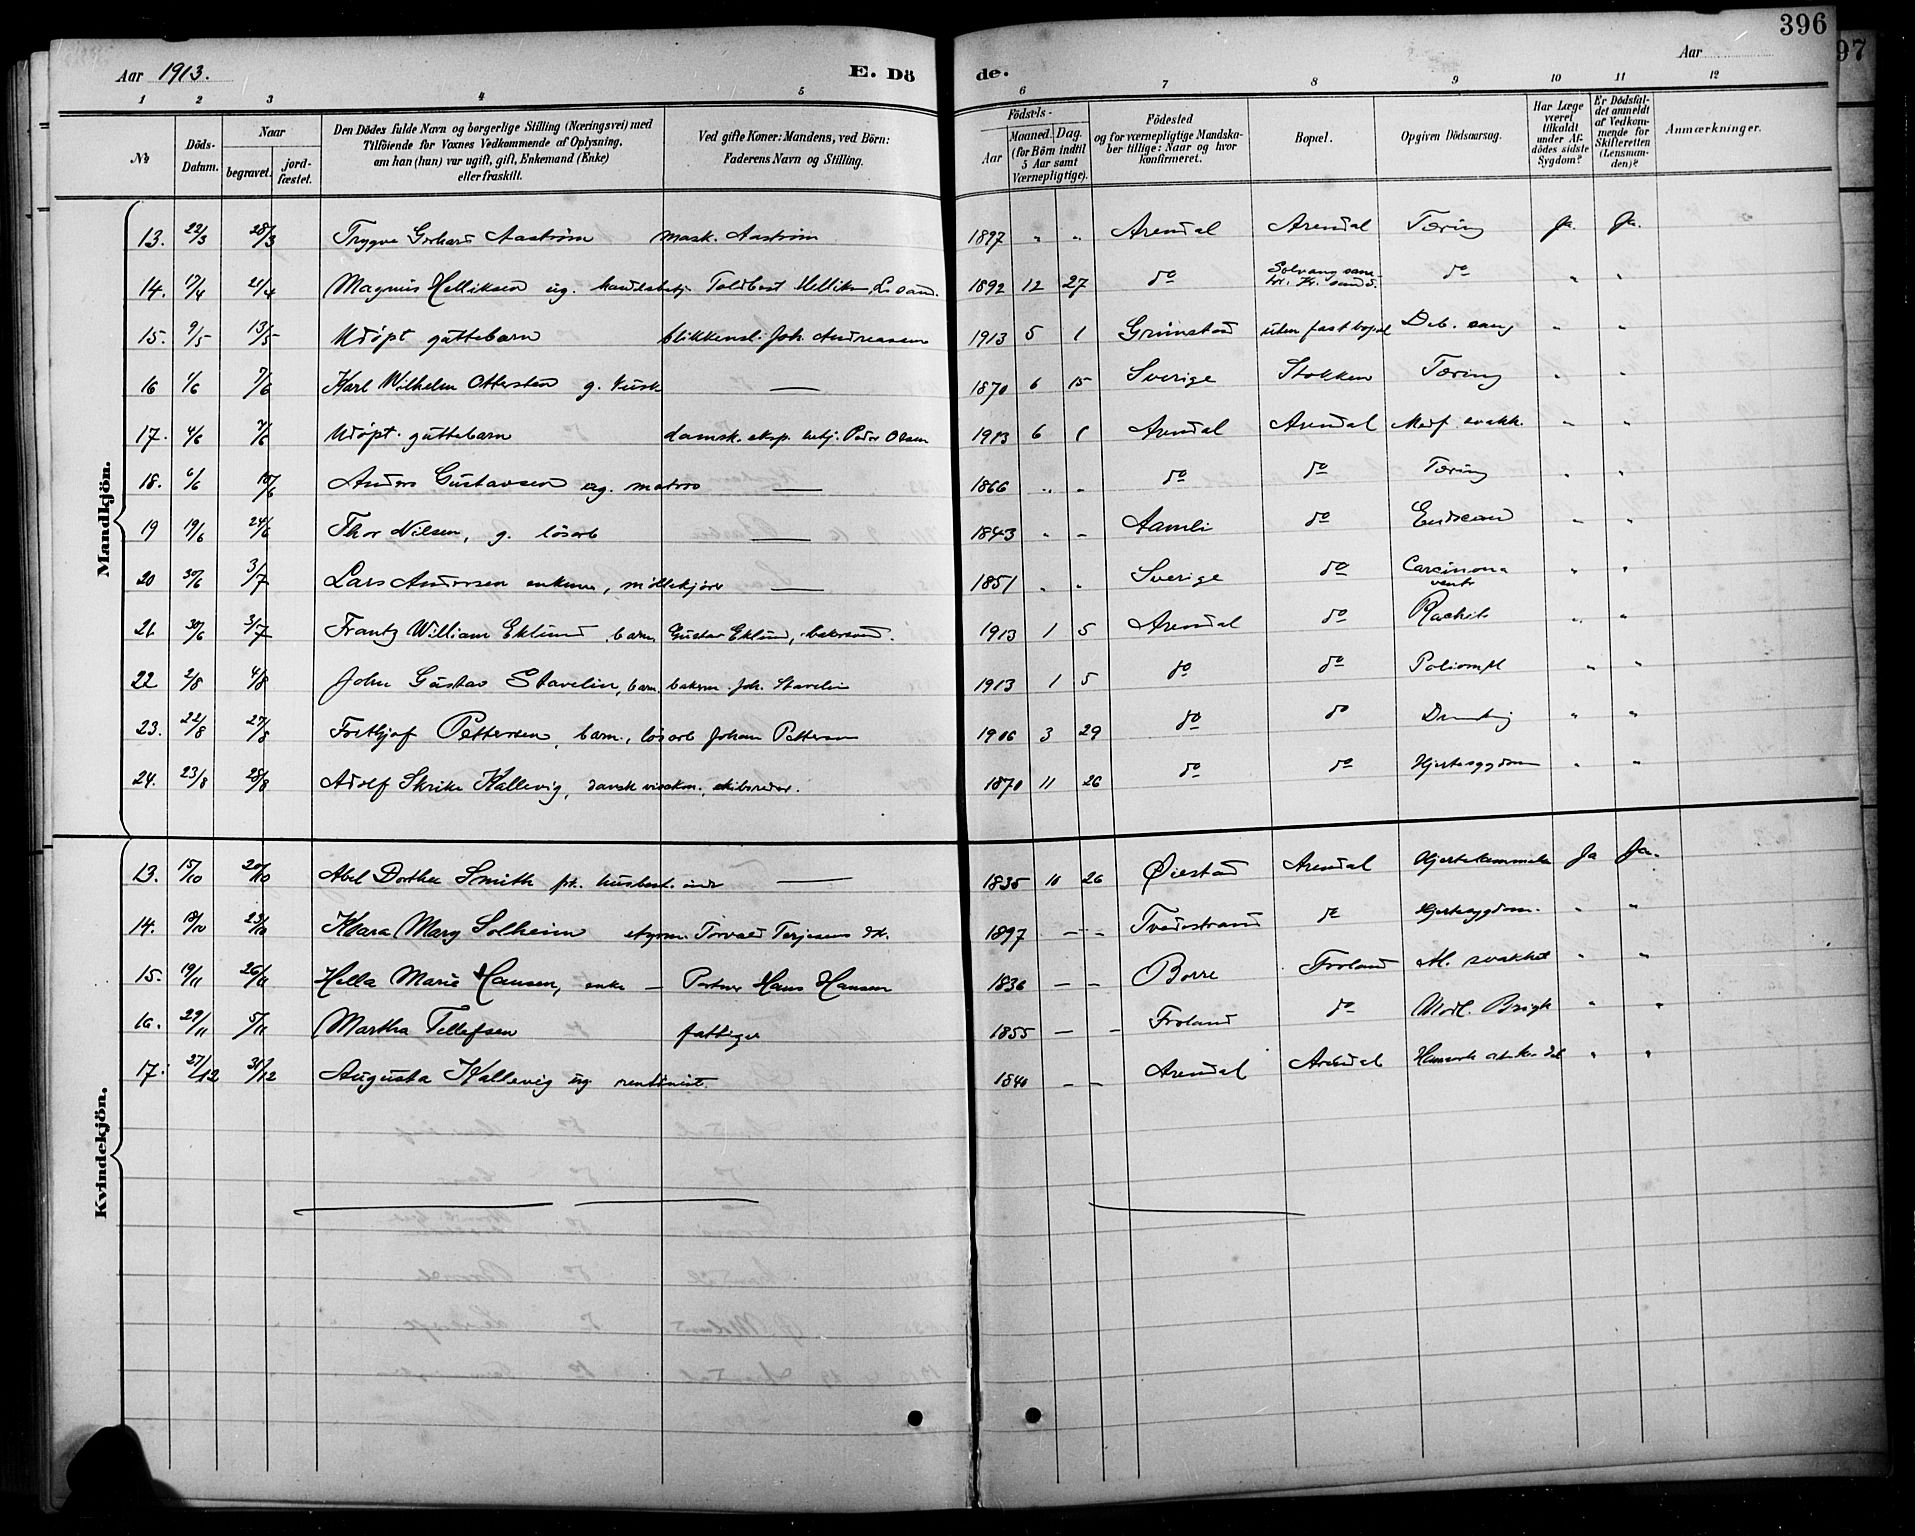 396
97
Aar 1913.
E. Dö
de.
Aar
1 2 3 4 5 6 7 8 9 10 11 12
No
Döds-Datum.
Naar
begravet.
jord-fæstet.
Den Dödes fulde Navn og borgerlige Stilling (Næringsvei) med
Tilföiende for Voxnes Vedkommende af Oplysning,
om han (hun) var ugift, gift, Enkemand (Enke)
eller fraskilt.
Ved gifte Koner: Mandens, ved Börn:
Faderens Navn og Stilling.
Födsels-
Aar
Maaned. Dag.
(for Börn indtil
5 Aar samt
Værnepligtige).
Födested
og for værnepligtige Mandska-
ber tillige: Naar og hvor
konfirmeret.
Bopæl.
Opgiven Dödsaarsag.
Har Læge
været
tilkaldt
under Af-
dödes sidste
Sygdom?
Er Dödsfal-
det anmeldt
af Vedkom-
mende for
Skifteretten
(Lensman-
den)?
Anmærkninger.
Mandkjön.
13. 22/3 28/3 Trygve Gerhard Aaström mask. Aaström 1897 " " Arendal Arendal Tæring Ja. Ja.
14. 17/4 21/4 Magnus Helliksen ug. handelsbetj. Toldbest Helliksen 1892 12 27 do Solvang do " "
15. 9/5 13/5 Udöpt guttebarn blikkensl. Joh. Andreassen 1913 5 1 Grimstad uten fast bopæl Deb. " "
16 1/6 7/6 Karl Wilhelm Ottersten g. — 1870 6 15 Sverige Stokken Tæring " "
17. 4/6 7/6 Udöpt. guttebarn damsk. eksp. betj. Peder Olsen 1913 6 1 Arendal Arendal Medf. svakh. " "
18. 6/6 10/6 Anders Gustavsen ug. matros — 1866 " " do do Tæring " "
19 19/6 24/6 Thor Nilsen, g. lösarb — 1843 " " Aamli do " "
20 30/6 3/7 Lars Andersen enkem, möllekjörer — 1851 " " Sverige do Carcinoma ventr " "
21. 30/6 3/7 Frantz William Eklund, barn, Gustav Eklund, bakersvend. 1913 1 5 Arendal do Rachit " "
22 2/8 4/8 John Gustav Stavelin, barn, bakerm. Joh. Stavelin 1913 1 5 do do " "
23. 22/8 27/8 Frithjof Pettersen, barn, lösarb Johan Pettersen 1906 3 29 do do " "
24. 23/8 28/8 Adolf Skrike Kallevig, dansk visekon., skibsreder. 1870 11 26 do do Hjertesygdom " "
Kvindekjön.
13. 15/10 20/10 Abel Dorthea Smith frk. husbest. inde — 1835 10 26 Øiestad Arendal Hjertelammelse Ja Ja.
14. 18/10 23/10 Klara Mary Solheim styrm. Torvald Terjesens dt. 1897 — — Tvedestrand do Hjertesygdom. " "
15. 19/11 26/11 Hella Marie Hansen, enke — Portner Hans Hansen 1836 — — Borre Froland Al. svakhet " "
16. 29/11 5/11 Martha Tellefsen fattiger 1855 — — Froland do " "
17. 27/12 31/12 Augusta Kallevig ug. rentenist. 1840 — — Arendal Arendal " "